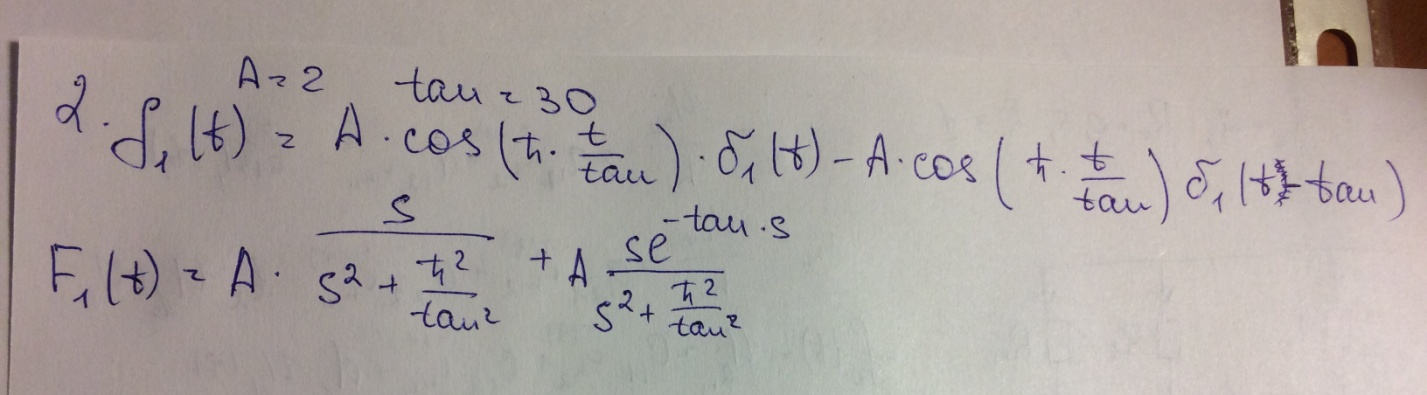 A = 2 tau = 30
2. f₁(t) = A · cos(ħ · t/tau) · δ₁(t) - A · cos(ħ · t/tau) δ₁(t - tau)
F₁(t) = A · s/(s² + ħ²/tau²) + A se^(-tau·s)/(s² + ħ²/tau²)